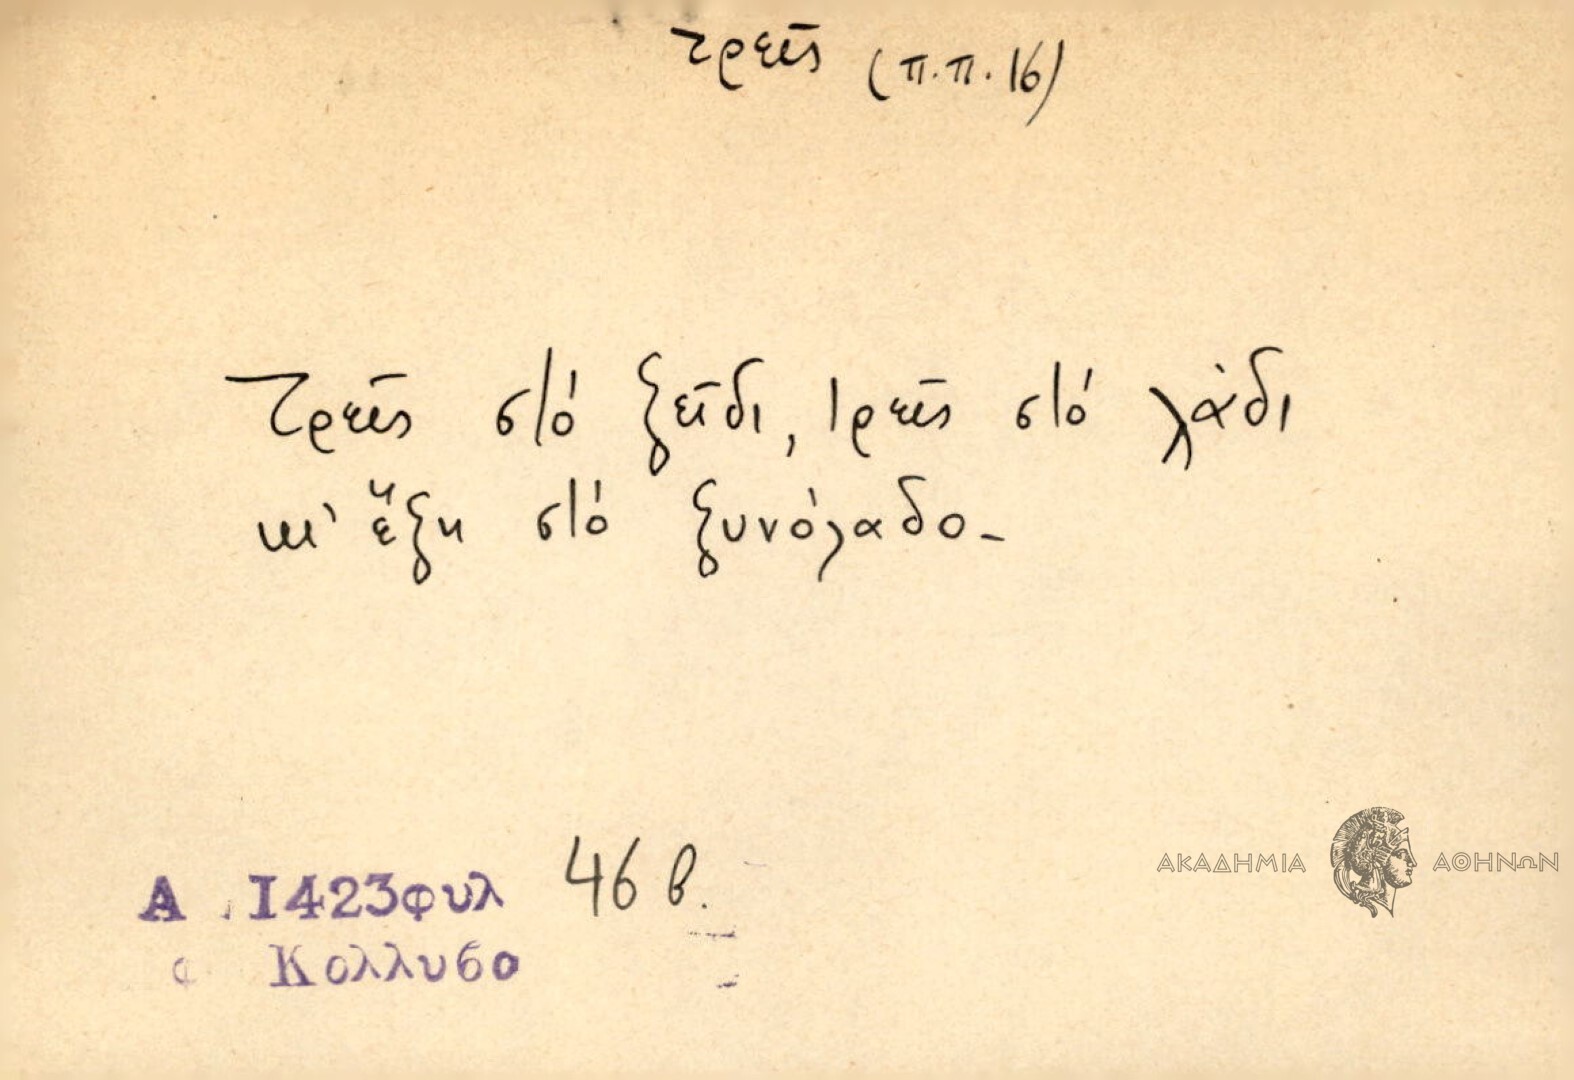 τρεῖς (π.π. 16)
Τρεῖς στό ξεῖδι, τρεῖς στό λάδι
κι' ἕξη στό ξυνόλαδο_
Α. 1423φυλ 46 β.
Κολλυβο
ΑΚΑΔΗΜΙΑ ΑΘΗΝΩΝ